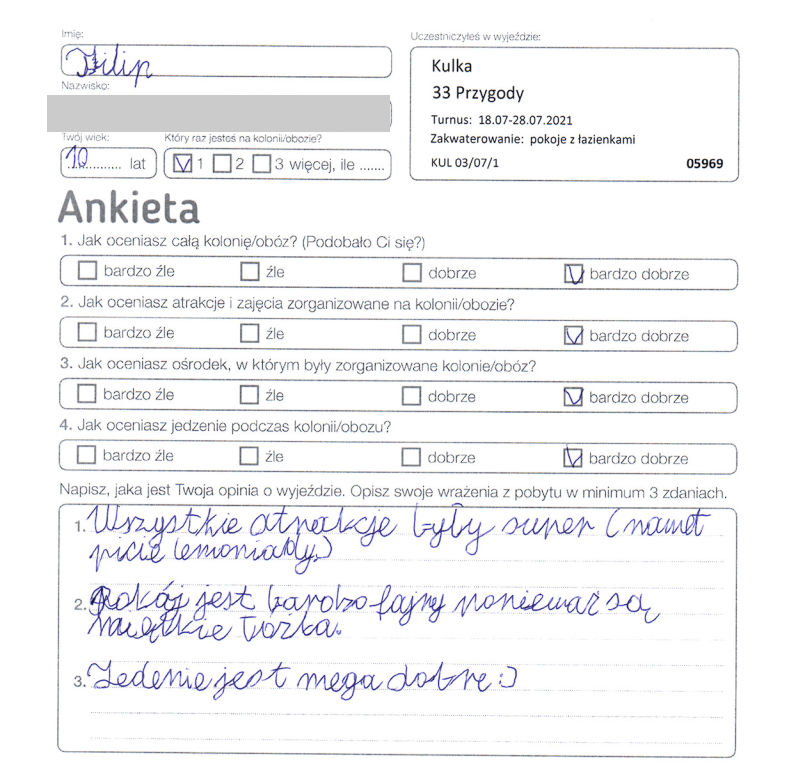 Imię:
Filip
Nazwisko:
Twój wiek:
10 lat
Który raz jesteś na kolonii/obozie?
1 2 3 więcej, ile .......
Uczestniczyłeś w wyjeździe:
Kulka
33 Przygody
Turnus: 18.07-28.07.2021
Zakwaterowanie: pokoje z łazienkami
KUL 03/07/1 05969
Ankieta
1. Jak oceniasz całą kolonię/obóz? (Podobało Ci się?)
bardzo źle źle dobrze bardzo dobrze
2. Jak oceniasz atrakcje i zajęcia zorganizowane na kolonii/obozie?
bardzo źle źle dobrze bardzo dobrze
3. Jak oceniasz ośrodek, w którym były zorganizowane kolonie/obóz?
bardzo źle źle dobrze bardzo dobrze
4. Jak oceniasz jedzenie podczas kolonii/obozu?
bardzo źle źle dobrze bardzo dobrze
Napisz, jaka jest Twoja opinia o wyjeździe. Opisz swoje wrażenia z pobytu w minimum 3 zdaniach.
1. Wszystkie atrakcje były super (nawet
picie lemoniady.)
2. Pokój jest bardzo fajny poniewarz są
mięękie łóżka.
3. Jedenie jest mega dobre :)